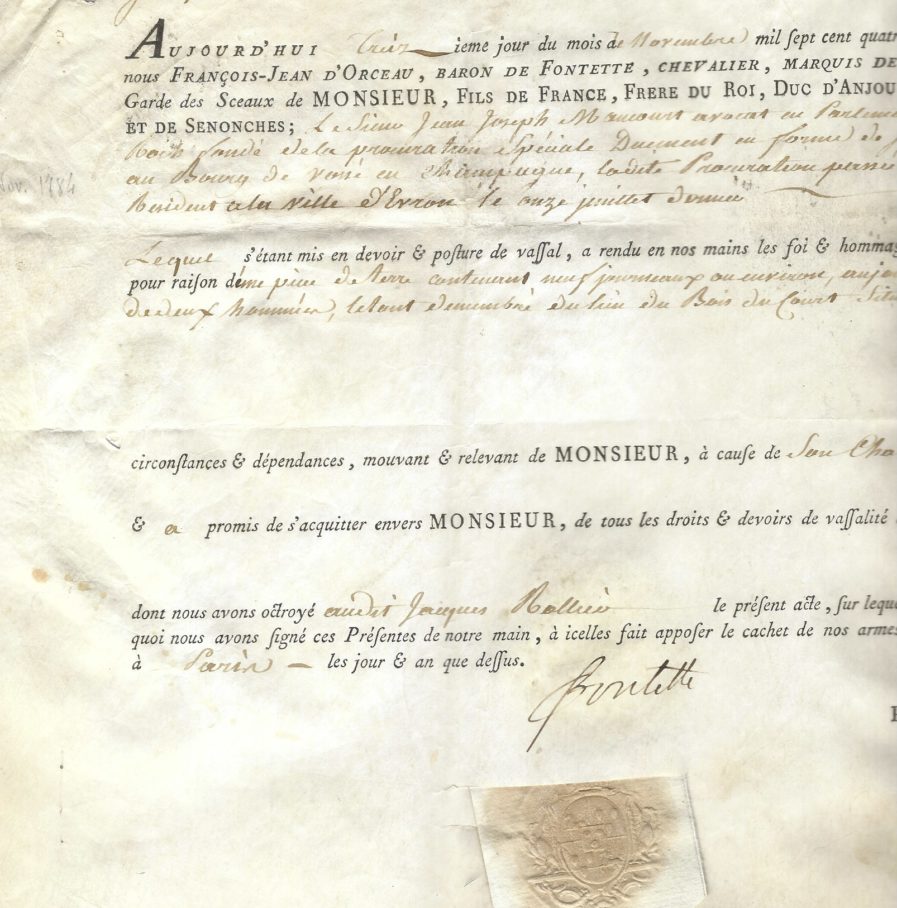 AUJOURD'HUI Treizieme jour du mois de Novembre mil sept cent quatr
nous FRANÇOIS-JEAN D'ORCEAU, BARON DE FONTETTE, CHEVALIER, MARQUIS DE
Garde des Sceaux de MONSIEUR, FILS DE FRANCE, FRERE DU ROI, DUC D'ANJOU
ET DE SENONCHES; Le Sieur Jean Joseph Maucourt avocat en Parleme
fondé de la procuration Spéciale Duement en forme de
au Bourg de vassé en Champagne, ladite Procuration
Nov. 1784
Resident a la ville d'Evron le onze juillet dernier
Lequel s'étant mis en devoir & posture de vassal, a rendu en nos mains les foi & hommag
pour raison d'une piece de terre contenant neuf journeaux ou environ,
de deux hommées, du lieu du Bois du Court Situ
circonstances & dépendances, mouvant & relevant de MONSIEUR, à cause de Son Cha
& a promis de s'acquitter envers MONSIEUR, de tous les droits & devoirs de vassalité
dont nous avons octroyé audit Jacques le présent acte, sur leque
quoi nous avons signé ces Présentes de notre main, à icelles fait apposer le cachet de nos armes
à Paris les jour & an que dessus.
Fontette